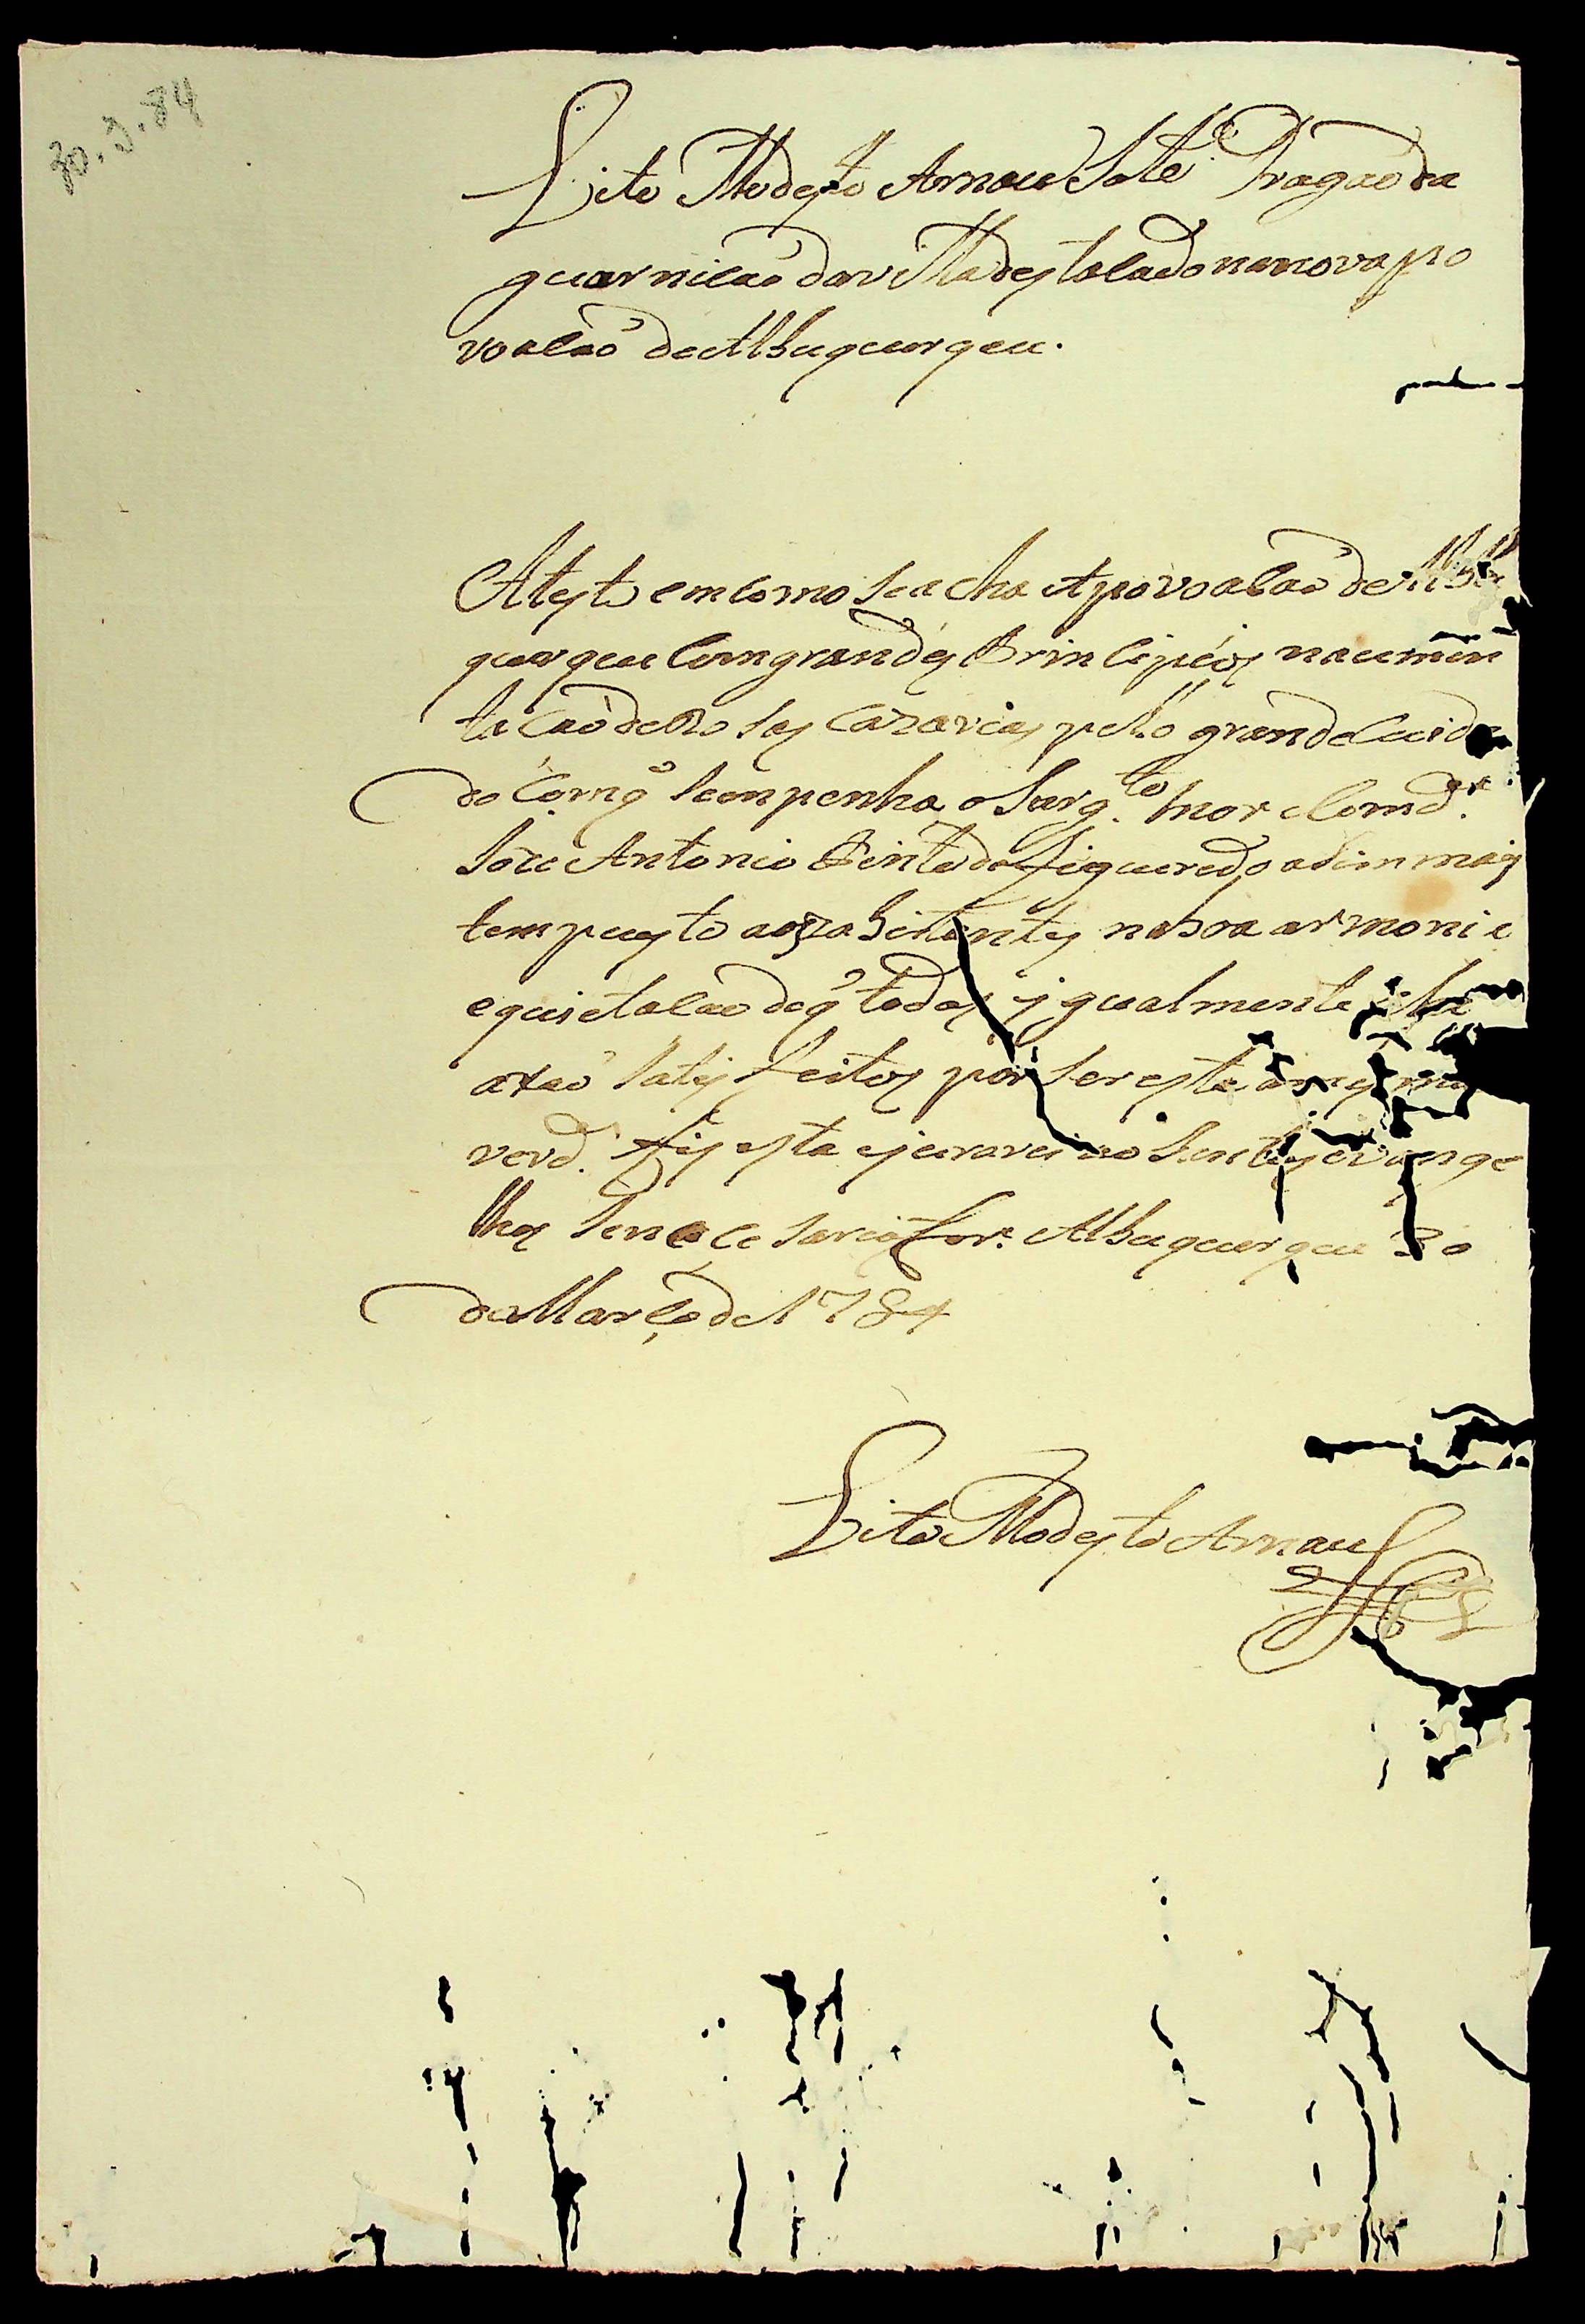 30.3.84
Lito Modesto Arnau Solé Dragaõ da
guarnicaõ da villa destacado na nova po
voacaõ de Albuquerque.
Atesto em como se acha a povoacaõ de Albu
querque com grandes Principios na aumen
tacaõ de Rosas cazarias pello grande cuida
do com q̃ se empenha o Sarg.to mor e Comd.e
Joze Antonio Pinto de Figueredo asim mais
tem pusto aos abitantes na boa armonia
e quietacaõ de q̃ todos igualmente se
axaõ satisfeitos por ser esta a mesma
verd.e fis esta e jurarei aos Santos evange
lhos se nececario for. Albuquerque 30
de Março de 1784
Lito Modesto Arnau